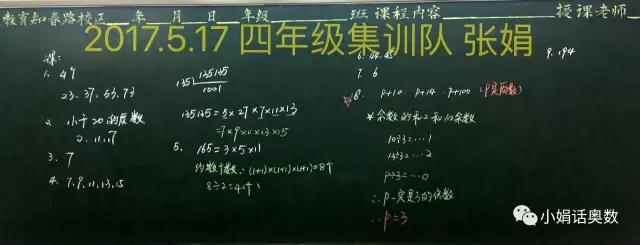 教育知春路校区 年 月 日 年级 班 课程内容 授课老师
2017.5.17 四年级集训队 张娟
课:
1. 4个
23. 37. 53. 73
2. 小于20的质数
2. 11. 17
3. 7
4. 7. 9. 11. 13. 15
135 135135
1001
135135=5×27×7×11×13
=7×9×11×13×15
5. 165=3×5×11
约数个数:(1+1)×(1+1)×(1+1)=8个
8÷2=4个
7. 6
8. P+10. P+14. P+100 (P是质数)
*余数的和=和的余数
10÷3=…1
14÷3=…2
P÷3=…0
∴P一定是3的倍数
∴P=3
9. 194
小娟话奥数